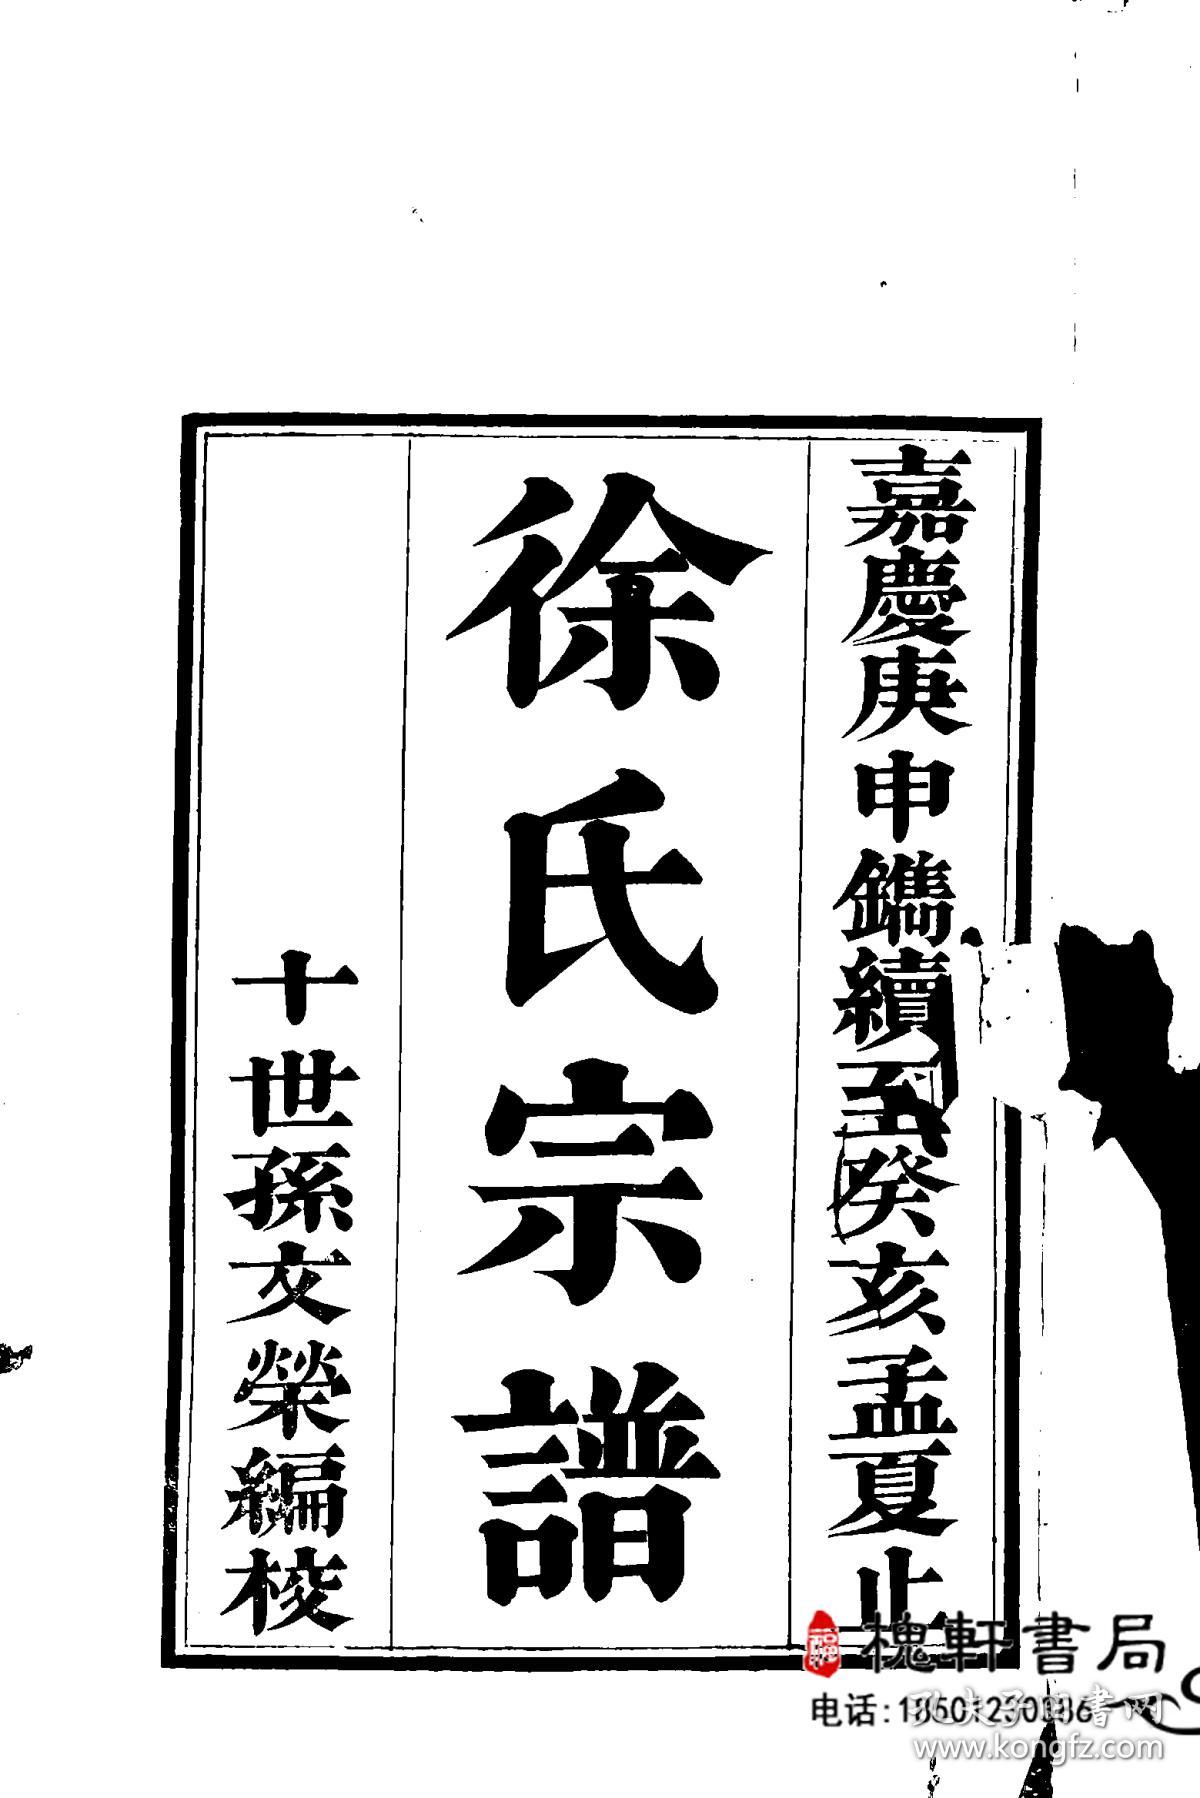 嘉慶庚申鐫續至癸亥孟夏止
徐氏宗譜
十世孫文榮編校
槐軒書局
电话:
孔夫子旧书网
www.kongfz.com